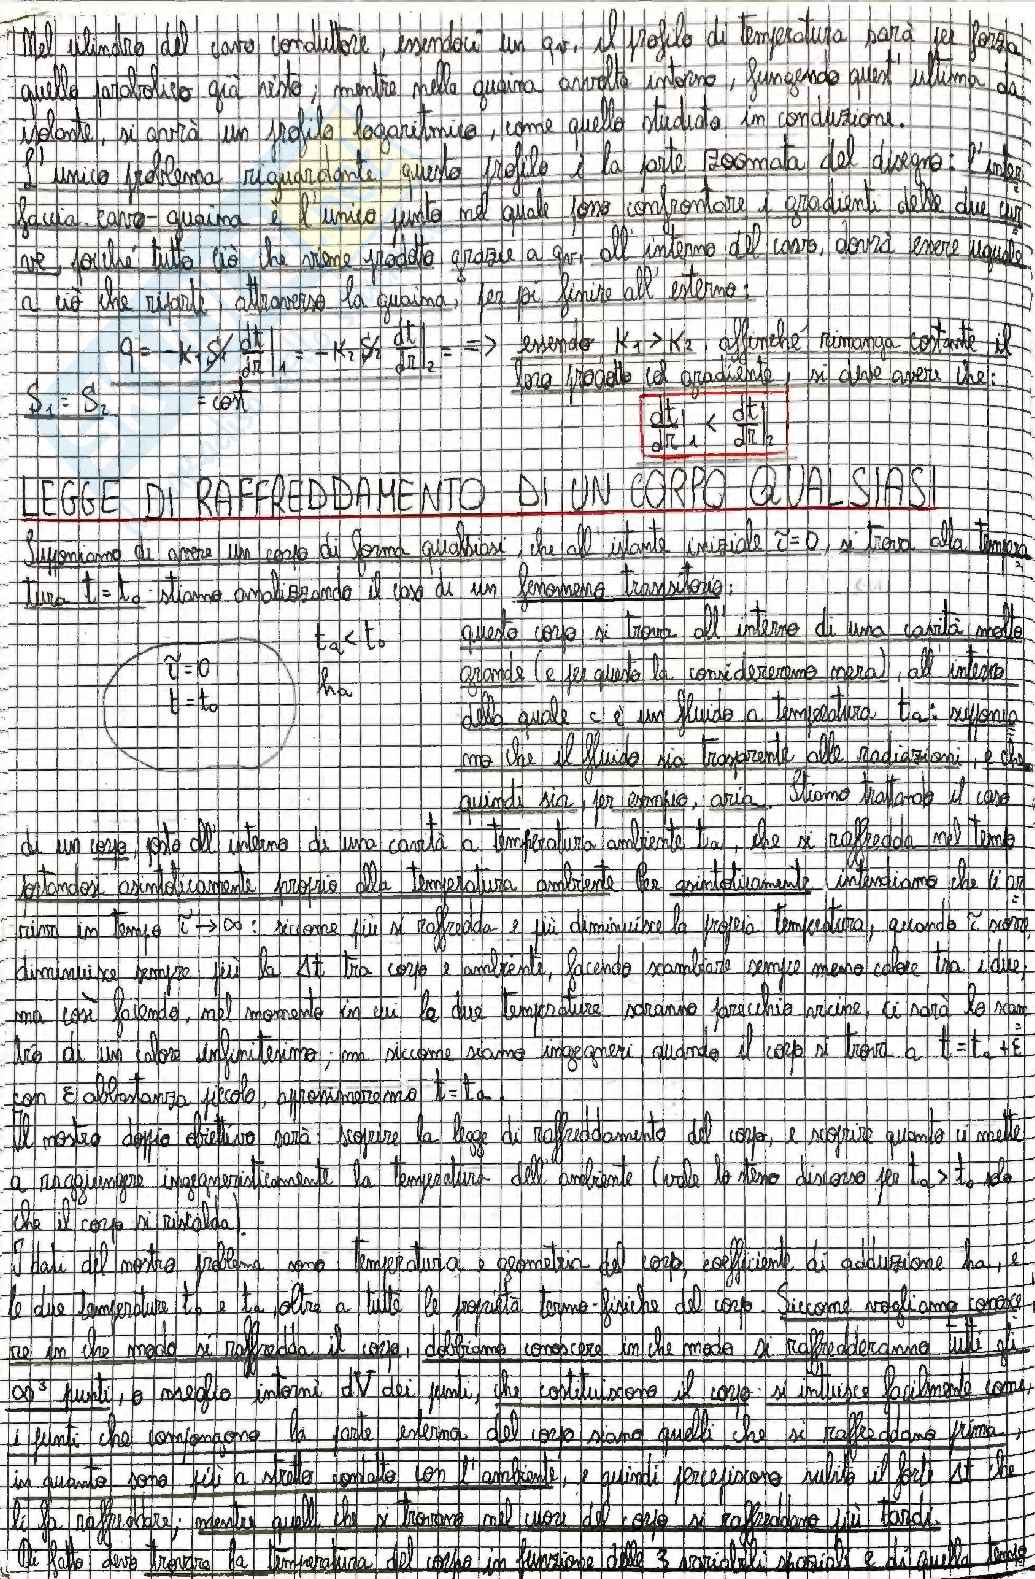 Nel cilindro del cavo conduttore, essendoci un qv, il profilo di temperatura sarà per forza
quello parabolico già visto; mentre nella guaina avvolta intorno, fungendo quest'ultima da
isolante, si avrà un profilo logaritmico, come quello studiato in conduzione.
L'unico problema riguardante questo profilo è la parte zoomata del disegno: l'inter
faccia cavo-guaina è l'unico punto nel quale posso confrontare i gradienti delle due cur
ve, poiché tutto ciò che viene prodotto grazie a qv, all'interno del cavo, dovrà essere uguale
a ciò che riparte attraverso la guaina, per poi finire all'esterno:
q = -K1 S1 dt/dr|1 = -K2 S2 dt/dr|2 = => essendo K1 > K2, affinché rimanga costante il
loro prodotto col gradiente, si deve avere che:
S1 = S2 = cost
dt/dr|1 < dt/dr|2
LEGGE DI RAFFREDDAMENTO DI UN CORPO QUALSIASI
Supponiamo di avere un corpo di forma qualsiasi, che all'istante iniziale τ=0, si trova alla tempera
tura t=t0: stiamo analizzando il caso di un fenomeno transitorio:
τ=0
t=t0
ta < t0
ha
questo corpo si trova all'interno di una cavità molto
grande (e per questo la considereremo nera), all'interno
della quale c'è un fluido a temperatura ta: supponia
mo che il fluido sia trasparente alle radiazioni, e che
quindi sia, per esempio, aria. Stiamo trattando il caso
di un corpo posto all'interno di una cavità a temperatura ambiente ta, che si raffredda nel tempo
portandosi asintoticamente proprio alla temperatura ambiente. Per asintoticamente intendiamo che ci ar
riva in tempo τ→∞: siccome più si raffredda e più diminuisce la propria temperatura, quando τ
diminuisce sempre più la Δt tra corpo e ambiente, facendo scambiare sempre meno calore tra i due;
ma così facendo, nel momento in cui le due temperature saranno parecchio vicine, ci sarà lo scam
bio di un calore infinitesimo; ma siccome siamo ingegneri, quando il corpo si trova a t=ta+ε
con ε abbastanza piccolo, approssimeremo t=ta.
Il nostro doppio obiettivo sarà: scoprire la legge di raffreddamento del corpo, e scoprire quanto ci mette
a raggiungere ingegneristicamente la temperatura dell'ambiente (vale lo stesso discorso per ta > t0, solo
che il corpo si riscalda).
I dati del nostro problema sono temperatura e geometria del corpo, coefficiente di adduzione ha, e
le due temperature t0 e ta, oltre a tutte le proprietà termo-fisiche del corpo. Siccome vogliamo conosce
re in che modo si raffredda il corpo, dobbiamo conoscere in che modo si raffredderanno tutti gli
∞³ punti, o meglio intorni dV dei punti, che costituiscono il corpo: si intuisce facilmente come
i punti che compongono la parte esterna del corpo siano quelli che si raffreddano prima,
in quanto sono più a stretto contatto con l'ambiente, e quindi percepiscono subito il forte Δt che
li fa raffreddare; mentre quelli che si trovano nel cuore del corpo si raffreddano più tardi.
Di fatto devo trovare la temperatura del corpo in funzione delle 3 variabili spaziali e di quella tempo